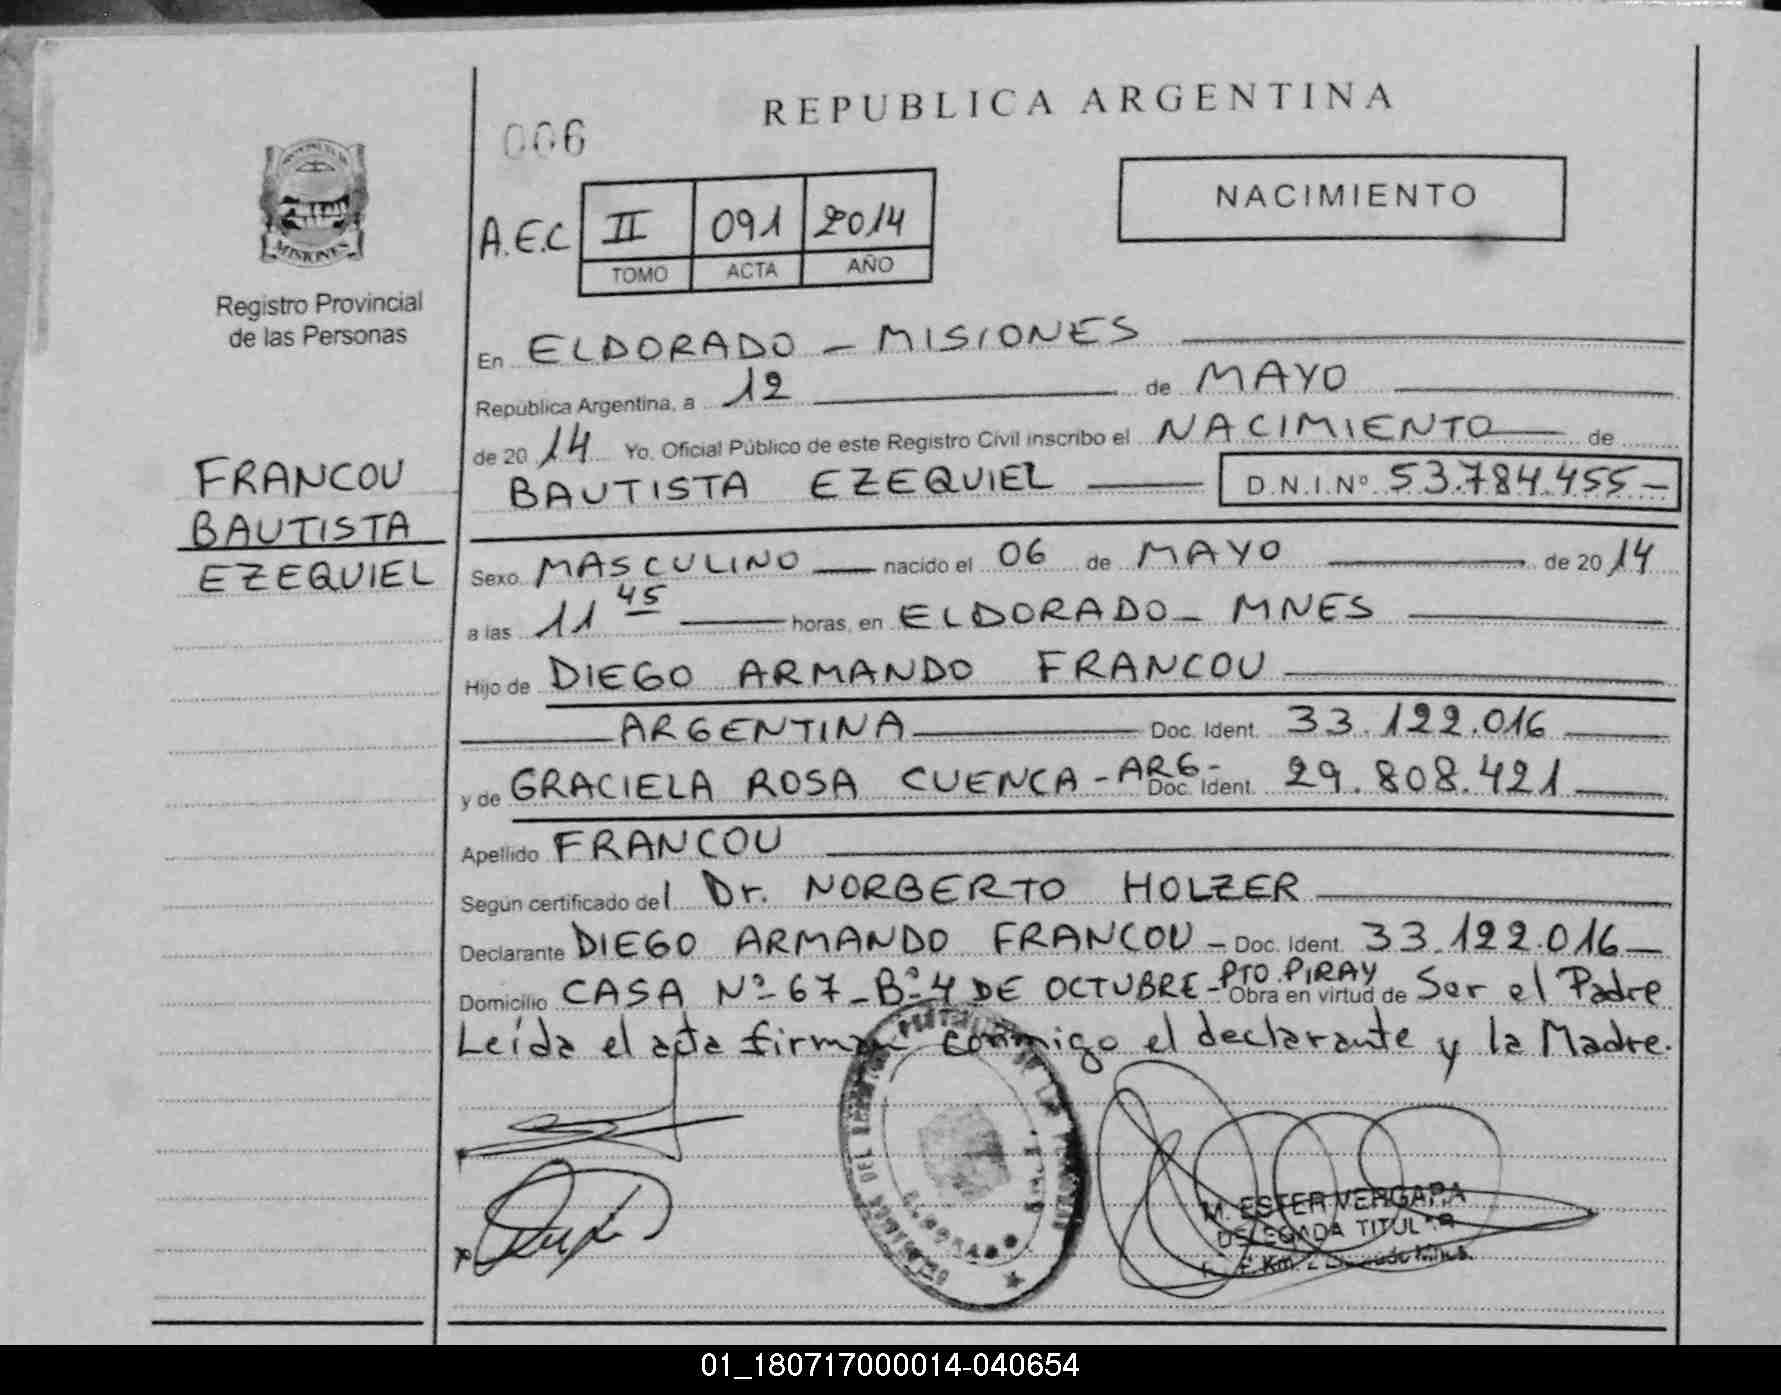 REPUBLICA ARGENTINA
006
NACIMIENTO
A.E.C II 091 2014
TOMO ACTA AÑO
MISIONES
Registro Provincial
de las Personas
FRANCOU
BAUTISTA
EZEQUIEL
En ELDORADO - MISIONES
República Argentina, a 12 de MAYO
de 2014 Yo. Oficial Público de este Registro Civil inscribo el NACIMIENTO de
BAUTISTA EZEQUIEL D.N.I.Nº 53.784.455-
Sexo MASCULINO nacido el 06 de MAYO de 2014
a las 11 45 horas, en ELDORADO - MNES
Hijo de DIEGO ARMANDO FRANCOU
ARGENTINA Doc. Ident. 33.122.016
y de GRACIELA ROSA CUENCA - ARG - Doc. Ident. 29.808.421
Apellido FRANCOU
Según certificado del Dr. NORBERTO HOLZER
Declarante DIEGO ARMANDO FRANCOU - Doc. Ident. 33.122.016
Domicilio CASA Nº 67 - Bº 4 DE OCTUBRE - PTO PIRAY Obra en virtud de Ser el Padre
Leída el acta firman conmigo el declarante y la Madre.
M. ESTER VERGARA
DELEGADA TITULAR
01_180717000014-040654